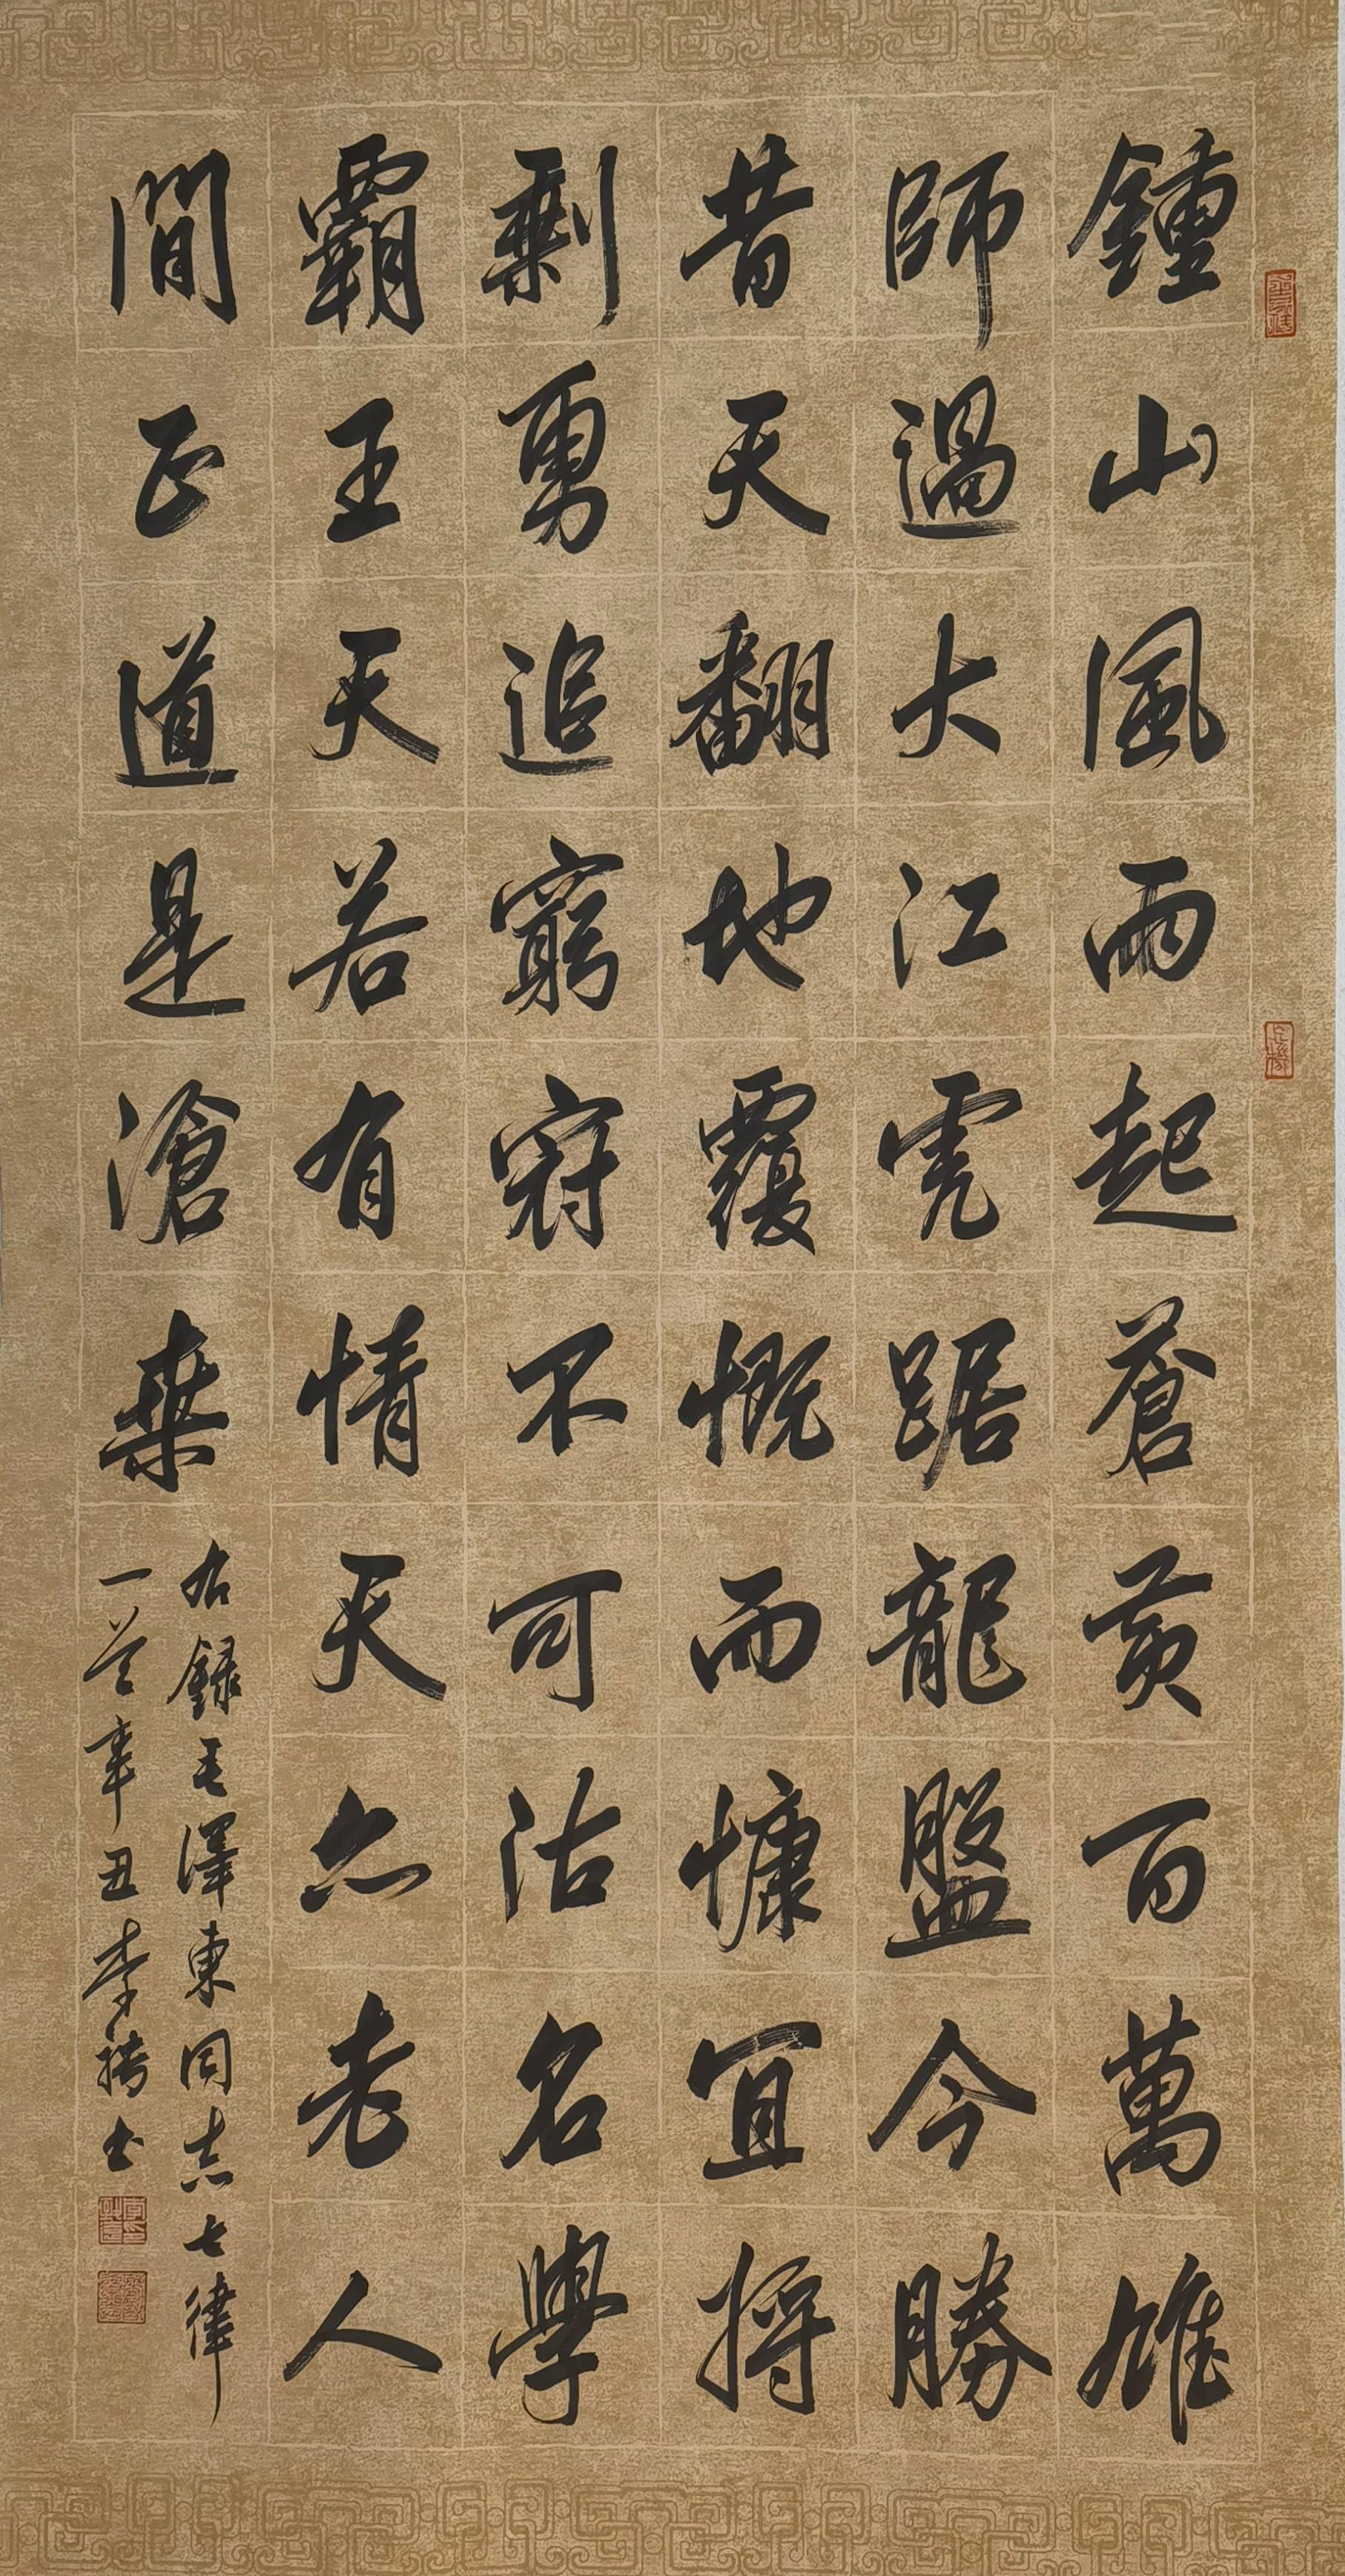 鍾山風雨起蒼黃百萬雄
師過大江虎踞龍盤今勝
昔天翻地覆慨而慷宜將
剩勇追窮寇不可沽名學
霸王天若有情天亦老人
間正道是滄桑
右錄毛澤東同志七律
一首辛丑李 書